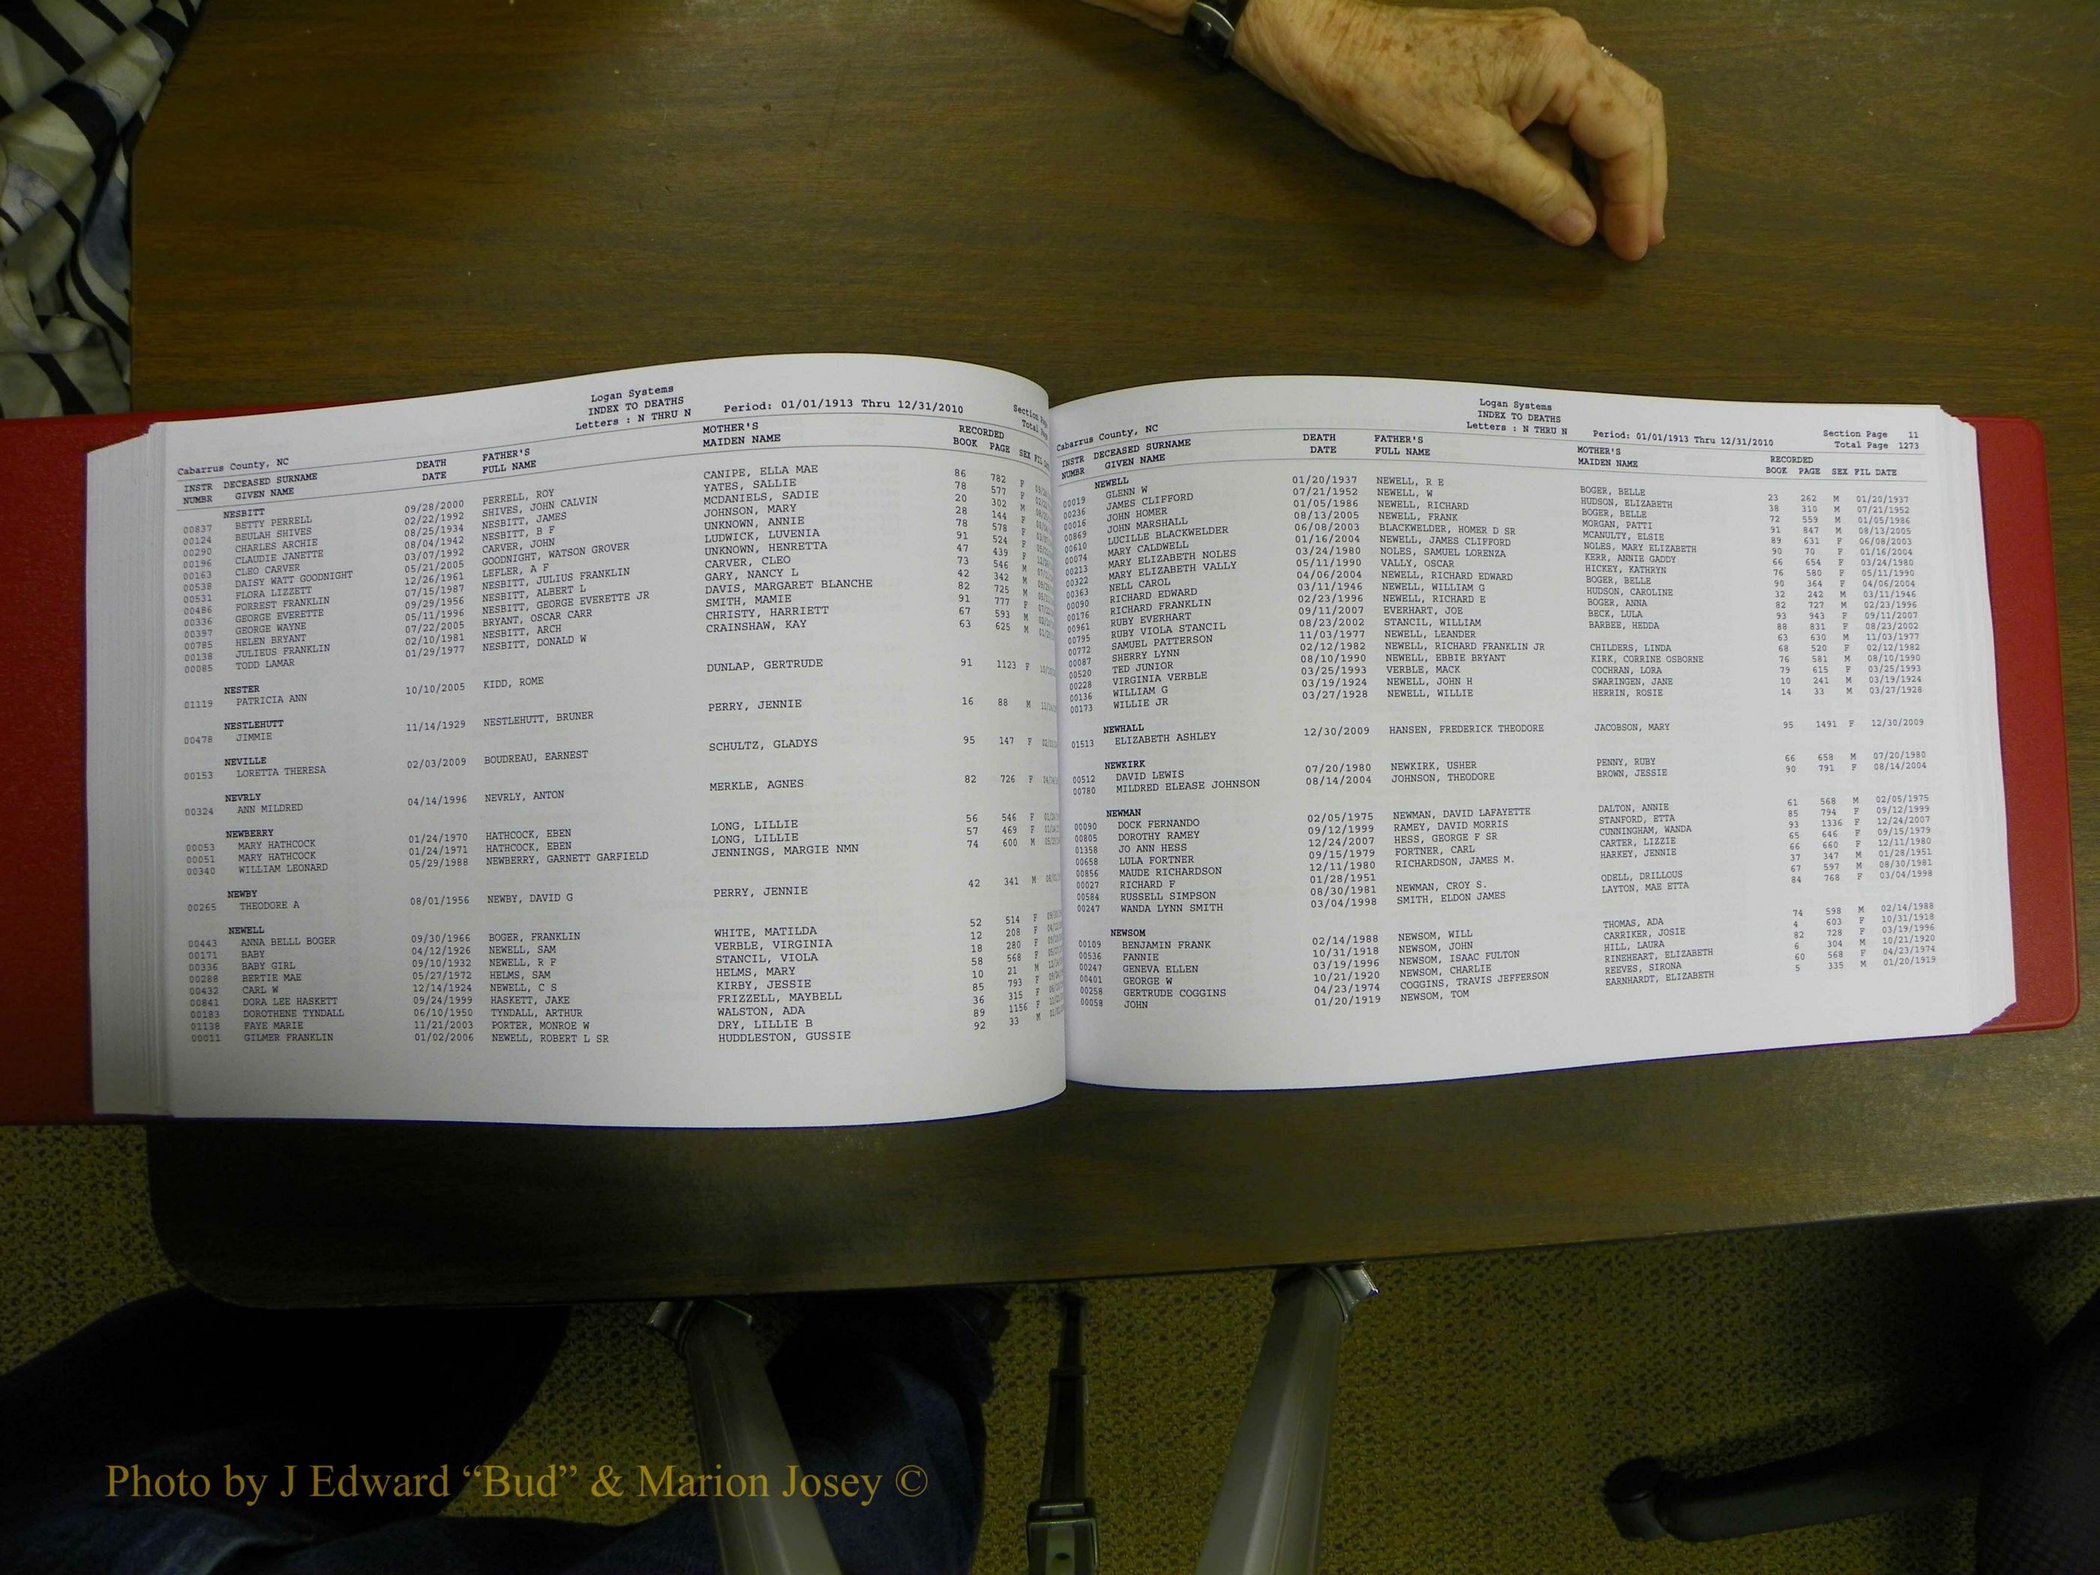 Logan Systems
INDEX TO DEATHS
Letters : N THRU N Period: 01/01/1913 Thru 12/31/2010
Cabarrus County, NC
INSTR DECEASED SURNAME DEATH FATHER'S MOTHER'S RECORDED
NUMBR GIVEN NAME DATE FULL NAME MAIDEN NAME BOOK PAGE SEX FIL
NESBITT
00837 BETTY PERRELL 09/28/2000 PERRELL, ROY CANIPE, ELLA MAE 86 782 F
00124 BEULAH SHIVES 02/22/1992 SHIVES, JOHN CALVIN YATES, SALLIE 78 577 F
00290 CHARLES ARCHIE 08/25/1934 NESBITT, JAMES MCDANIELS, SADIE 20 302 M
00196 CLAUDIE JANETTE 08/04/1942 NESBITT, B F JOHNSON, MARY 28 144 F
00163 CLEO CARVER 03/07/1992 CARVER, JOHN UNKNOWN, ANNIE 78 578 F
00538 DAISY WATT GOODNIGHT 05/21/2005 GOODNIGHT, WATSON GROVER LUDWICK, LUVENIA 91 524 F
00531 FLORA LIZZETT 12/26/1961 LEFLER, A F UNKNOWN, HENRETTA 47 439 F
00486 FORREST FRANKLIN 07/15/1987 NESBITT, JULIUS FRANKLIN CARVER, CLEO 73 546 M
00336 GEORGE EVERETTE 09/29/1956 NESBITT, ALBERT L GARY, NANCY L 42 342 M
00397 GEORGE WAYNE 05/11/1996 NESBITT, GEORGE EVERETTE JR DAVIS, MARGARET BLANCHE 82 725 M
00785 HELEN BRYANT 07/22/2005 BRYANT, OSCAR CARR SMITH, MAMIE 91 777 F
00138 JULIEUS FRANKLIN 02/10/1981 NESBITT, ARCH CHRISTY, HARRIETT 67 593 M
00085 TODD LAMAR 01/29/1977 NESBITT, DONALD W CRAINSHAW, KAY 63 625 M
NESTER
01119 PATRICIA ANN 10/10/2005 KIDD, ROME DUNLAP, GERTRUDE 91 1123 F
NESTLEHUTT
00478 JIMMIE 11/14/1929 NESTLEHUTT, BRUNER PERRY, JENNIE 16 88 M
NEVILLE
00153 LORETTA THERESA 02/03/2009 BOUDREAU, EARNEST SCHULTZ, GLADYS 95 147 F
NEVRLY
00324 ANN MILDRED 04/14/1996 NEVRLY, ANTON MERKLE, AGNES 82 726 F
NEWBERRY
00053 MARY HATHCOCK 01/24/1970 HATHCOCK, EBEN LONG, LILLIE 56 546 F
00051 MARY HATHCOCK 01/24/1971 HATHCOCK, EBEN LONG, LILLIE 57 469 F
00340 WILLIAM LEONARD 05/29/1988 NEWBERRY, GARNETT GARFIELD JENNINGS, MARGIE NMN 74 600 M
NEWBY
00265 THEODORE A 08/01/1956 NEWBY, DAVID G PERRY, JENNIE 42 341 M
NEWELL
00443 ANNA BELLL BOGER 09/30/1966 BOGER, FRANKLIN WHITE, MATILDA 52 514 F
00171 BABY 04/12/1926 NEWELL, SAM VERBLE, VIRGINIA 12 208 F
00336 BABY GIRL 09/10/1932 NEWELL, R F STANCIL, VIOLA 18 280 F
00288 BERTIE MAE 05/27/1972 HELMS, SAM HELMS, MARY 58 568 F
00432 CARL W 12/14/1924 NEWELL, C S KIRBY, JESSIE 10 21 M
00841 DORA LEE HASKETT 09/24/1999 HASKETT, JAKE FRIZZELL, MAYBELL 85 793 F
00183 DOROTHENE TYNDALL 06/10/1950 TYNDALL, ARTHUR WALSTON, ADA 36 315 F
01138 FAYE MARIE 11/21/2003 PORTER, MONROE W DRY, LILLIE B 89 1156 F
00011 GILMER FRANKLIN 01/02/2006 NEWELL, ROBERT L SR HUDDLESTON, GUSSIE 92 33 M
Logan Systems
INDEX TO DEATHS
Letters : N THRU N Period: 01/01/1913 Thru 12/31/2010
Section Page 11
Total Page 1273
Cabarrus County, NC
INSTR DECEASED SURNAME DEATH FATHER'S MOTHER'S RECORDED
NUMBR GIVEN NAME DATE FULL NAME MAIDEN NAME BOOK PAGE SEX FIL DATE
NEWELL
00019 GLENN W 01/20/1937 NEWELL, R E BOGER, BELLE 23 262 M 01/20/1937
00236 JAMES CLIFFORD 07/21/1952 NEWELL, W HUDSON, ELIZABETH 38 310 M 07/21/1952
00016 JOHN HOMER 01/05/1986 NEWELL, RICHARD BOGER, BELLE 72 559 M 01/05/1986
00869 JOHN MARSHALL 08/13/2005 NEWELL, FRANK MORGAN, PATTI 91 847 M 08/13/2005
00610 LUCILLE BLACKWELDER 06/08/2003 BLACKWELDER, HOMER D SR MCANULTY, ELSIE 89 631 F 06/08/2003
00074 MARY CALDWELL 01/16/2004 NEWELL, JAMES CLIFFORD NOLES, MARY ELIZABETH 90 70 F 01/16/2004
00213 MARY ELIZABETH NOLES 03/24/1980 NOLES, SAMUEL LORENZA KERR, ANNIE GADDY 66 654 F 03/24/1980
00322 MARY ELIZABETH VALLY 05/11/1990 VALLY, OSCAR HICKEY, KATHRYN 76 580 F 05/11/1990
00363 NELL CAROL 04/06/2004 NEWELL, RICHARD EDWARD BOGER, BELLE 90 364 F 04/06/2004
00090 RICHARD EDWARD 03/11/1946 NEWELL, WILLIAM G HUDSON, CAROLINE 32 242 M 03/11/1946
00176 RICHARD FRANKLIN 02/23/1996 NEWELL, RICHARD E BOGER, ANNA 82 727 M 02/23/1996
00961 RUBY EVERHART 09/11/2007 EVERHART, JOE BECK, LULA 93 943 F 09/11/2007
00795 RUBY VIOLA STANCIL 08/23/2002 STANCIL, WILLIAM BARBEE, HEDDA 88 831 F 08/23/2002
00772 SAMUEL PATTERSON 11/03/1977 NEWELL, LEANDER 63 630 M 11/03/1977
00087 SHERRY LYNN 02/12/1982 NEWELL, RICHARD FRANKLIN JR CHILDERS, LINDA 68 520 F 02/12/1982
00520 TED JUNIOR 08/10/1990 NEWELL, EBBIE BRYANT KIRK, CORRINE OSBORNE 76 581 M 08/10/1990
00228 VIRGINIA VERBLE 03/25/1993 VERBLE, MACK COCHRAN, LORA 79 615 F 03/25/1993
00136 WILLIAM G 03/19/1924 NEWELL, JOHN H SWARINGEN, JANE 10 241 M 03/19/1924
00173 WILLIE JR 03/27/1928 NEWELL, WILLIE HERRIN, ROSIE 14 33 M 03/27/1928
NEWHALL
01513 ELIZABETH ASHLEY 12/30/2009 HANSEN, FREDERICK THEODORE JACOBSON, MARY 95 1491 F 12/30/2009
NEWKIRK
00512 DAVID LEWIS 07/20/1980 NEWKIRK, USHER PENNY, RUBY 66 658 M 07/20/1980
00780 MILDRED ELEASE JOHNSON 08/14/2004 JOHNSON, THEODORE BROWN, JESSIE 90 791 F 08/14/2004
NEWMAN
00090 DOCK FERNANDO 02/05/1975 NEWMAN, DAVID LAFAYETTE DALTON, ANNIE 61 568 M 02/05/1975
00805 DOROTHY RAMEY 09/12/1999 RAMEY, DAVID MORRIS STANFORD, ETTA 85 794 F 09/12/1999
01358 JO ANN HESS 12/24/2007 HESS, GEORGE F SR CUNNINGHAM, WANDA 93 1336 F 12/24/2007
00658 LULA FORTNER 09/15/1979 FORTNER, CARL CARTER, LIZZIE 65 646 F 09/15/1979
00856 MAUDE RICHARDSON 12/11/1980 RICHARDSON, JAMES M. HARKEY, JENNIE 66 660 F 12/11/1980
00027 RICHARD F 01/28/1951 37 347 M 01/28/1951
00584 RUSSELL SIMPSON 08/30/1981 NEWMAN, CROY S. ODELL, DRILLOUS 67 597 M 08/30/1981
00247 WANDA LYNN SMITH 03/04/1998 SMITH, ELDON JAMES LAYTON, MAE ETTA 84 768 F 03/04/1998
NEWSOM
00109 BENJAMIN FRANK 02/14/1988 NEWSOM, WILL THOMAS, ADA 74 598 M 02/14/1988
00536 FANNIE 10/31/1918 NEWSOM, JOHN CARRIKER, JOSIE 4 603 F 10/31/1918
00247 GENEVA ELLEN 03/19/1996 NEWSOM, ISAAC FULTON HILL, LAURA 82 728 F 03/19/1996
00401 GEORGE W 10/21/1920 NEWSOM, CHARLIE RINEHEART, ELIZABETH 6 304 M 10/21/1920
00258 GERTRUDE COGGINS 04/23/1974 COGGINS, TRAVIS JEFFERSON REEVES, SIRONA 60 568 F 04/23/1974
00058 JOHN 01/20/1919 NEWSOM, TOM EARNHARDT, ELIZABETH 5 335 M 01/20/1919
Photo by J Edward “Bud” & Marion Josey ©